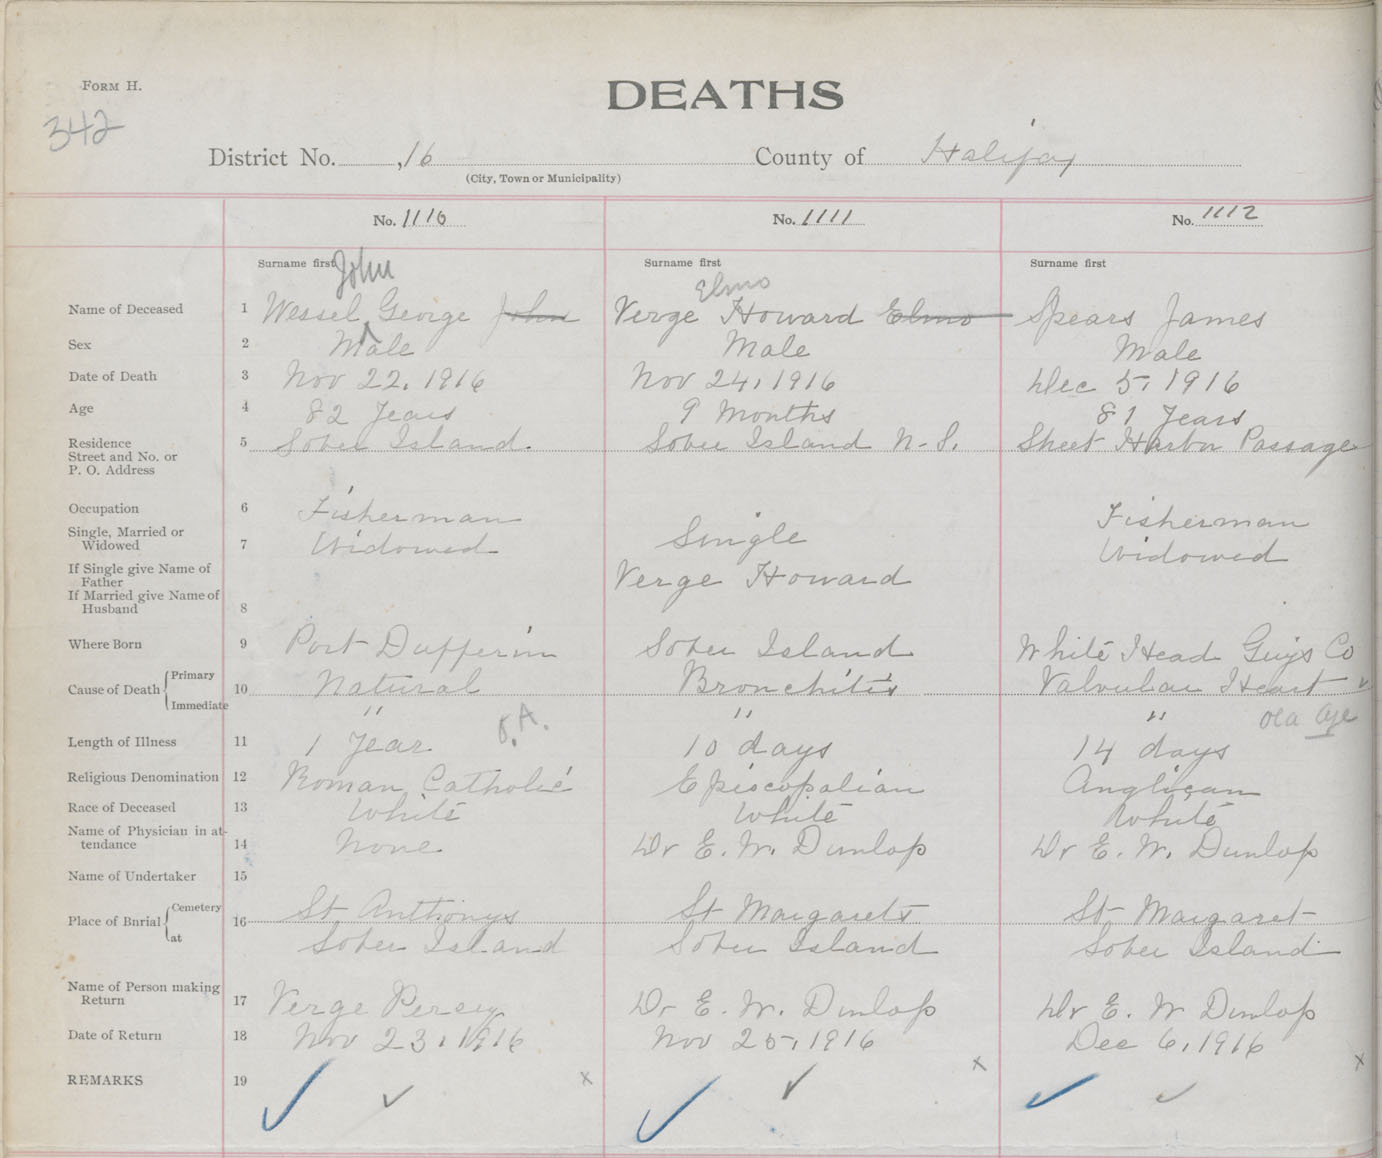 FORM H.
DEATHS
342
District No. 16 County of Halifax
(City, Town or Municipality)
No. 1110 No. 1111 No. 1112
Surname first John Surname first Surname first
Elmo
Name of Deceased 1 Wessel George John Verge Howard Elmo Spears James
Sex 2 Male Male Male
Date of Death 3 Nov 22, 1916 Nov 24, 1916 Dec 5, 1916
Age 4 82 Years 9 Months 81 Years
Residence 5 Sober Island. Sober Island N.S. Sheet Harbor Passage
Street and No. or
P. O. Address
Occupation 6 Fisherman Fisherman
Single, Married or
Widowed 7 Widowed Single Widowed
If Single give Name of
Father Verge Howard
If Married give Name of
Husband 8
Where Born 9 Port Dufferin Sober Island White Head Guys Co
Cause of Death { Primary 10 Natural Bronchitis Valvular Heart
Immediate " " " Old Age
O.A.
Length of Illness 11 1 Year 10 days 14 days
Religious Denomination 12 Roman Catholic Episcopalian Anglican
Race of Deceased 13 White White White
Name of Physician in at-
tendance 14 None Dr E. W. Dunlop Dr E. W. Dunlop
Name of Undertaker 15
Place of Burial { Cemetery 16 St Anthonys St Margarets St Margaret
at Sober Island Sober Island Sober Island
Name of Person making
Return 17 Verge Persey Dr E. W. Dunlop Dr E. W Dunlop
Date of Return 18 Nov 23, 1916 Nov 25, 1916 Dec 6, 1916
REMARKS 19 x x x